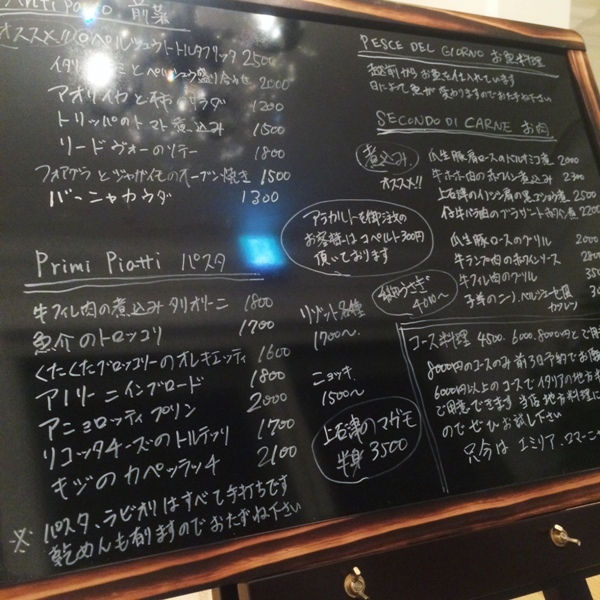 Antipasto 前菜
オススメ!! ペルシュウ トルタフリッタ 2500
ペルシュウ盛り合わせ 2000
アオリイカと柿のサラダ 1200
トリッパのトマト煮込み 1500
リードヴォーのソテー 1800
フォアグラとジャガイモのオーブン焼き 1500
バーニャカウダ 1300
Primi Piatti パスタ
牛フィレ肉の煮込みタリオリーニ 1800
魚介のトロッコリ 1700
くたくたブロッコリーのオレキエッティ 1600
アノリーニインブロード 1800
アニョロッティプリン 2000
リコッタチーズのトルテッリ 1700
キジのカペレッチ 2100
※ パスタ、ラビオリはすべて手打ちです
乾めんも有りますのでおたずね下さい
アラカルトを御注文の
お客様はコペルト300円
頂いております
リゾット各種
1700〜
ニョッキ
1500〜
上石津のマガモ
半身 3500
PESCE DEL GIORNO お魚料理
越前からお魚を仕入れています
日によって魚が変わりますのでおたずね下さい
SECONDO DI CARNE お肉
煮込み
オススメ!!
瓜生豚肩ロースの煮 2000
牛ホホ肉の赤ワイン煮 2300
上石津のイノシシ肩の煮 2500
仔牛バラ肉のブラザート 2200
瓜生豚ロースのグリル 2000
牛ランプ肉の赤ワインソース
牛フィレ肉のグリル
4000〜
コース料理 4500. 6000. 8000円とご用
8000円のコースのみ前3日予約でお
6000円以上のコースでイタリアの地方料
ご用意できます 当店地方料理に
のでぜひお試し下さい
只今は エミリア.ロマーニャ